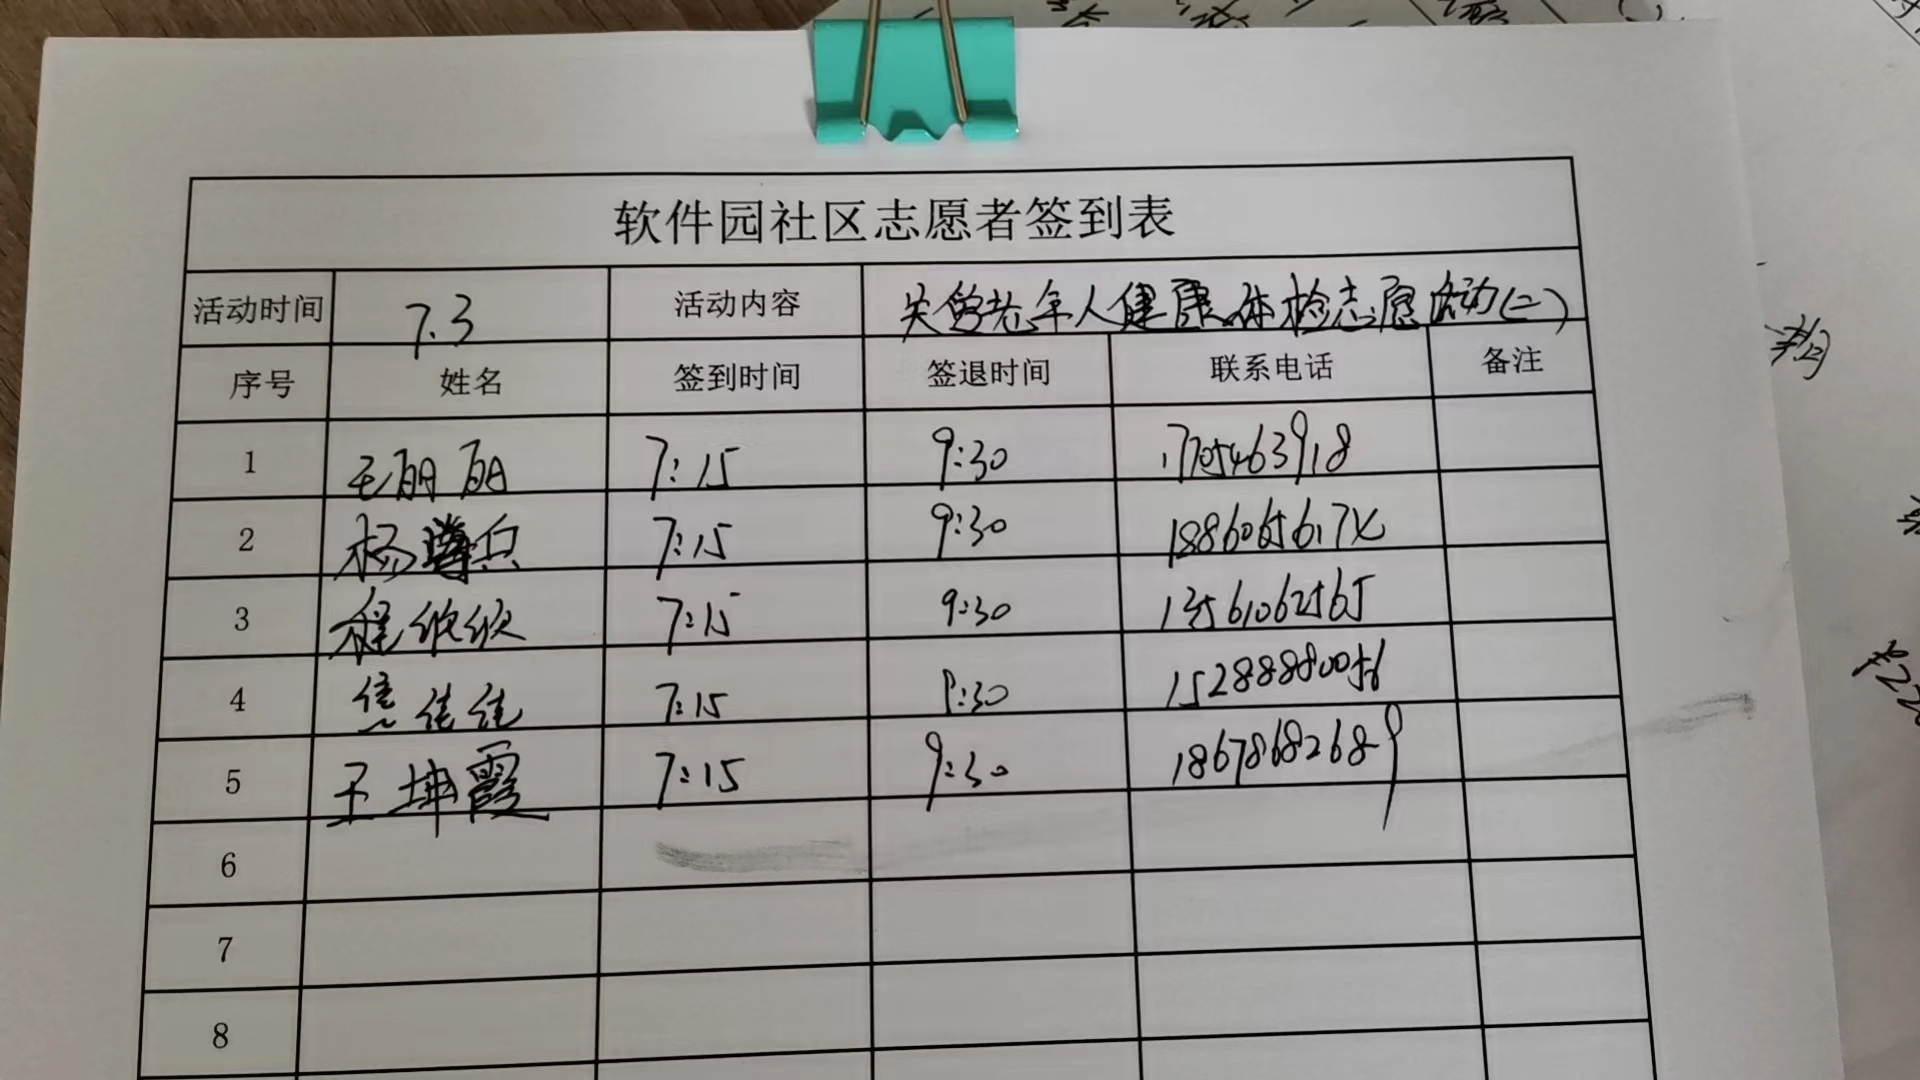 软件园社区志愿者签到表
活动时间 7.3 活动内容 老年人健康体检志愿活动(二)
序号 姓名 签到时间 签退时间 联系电话 备注
1 王丽丽 7:15 9:30
2 杨 兵 7:15 9:30
3 程欣欣 7:15 9:30 13561062565
4 焦佳佳 7:15 9:30 15288880056
5 王坤霞 7:15 9:30 18678682689
6
7
8